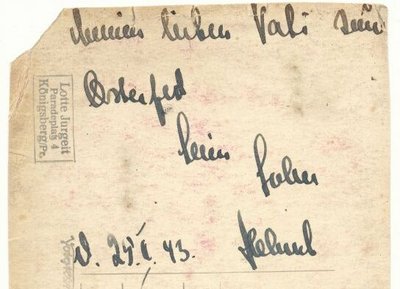 meinem lieben Vati zum
Osterfest
sein Sohn
Helmut
Lotte Jurgeit
Paradeplatz 4
Königsberg/Pr.